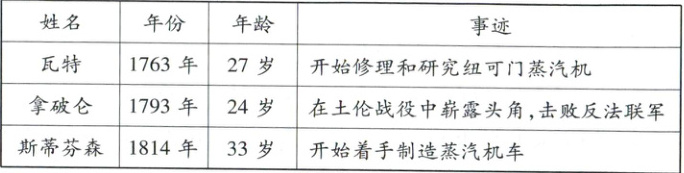 姓名 年份 年龄 事迹
瓦特 1763年 27岁 开始修理和研究纽可门蒸汽机
拿破仑 1793年 24岁 在土伦战役中崭露头角,击败反法联军
斯蒂芬森 1814年 33岁 开始着手制造蒸汽机车